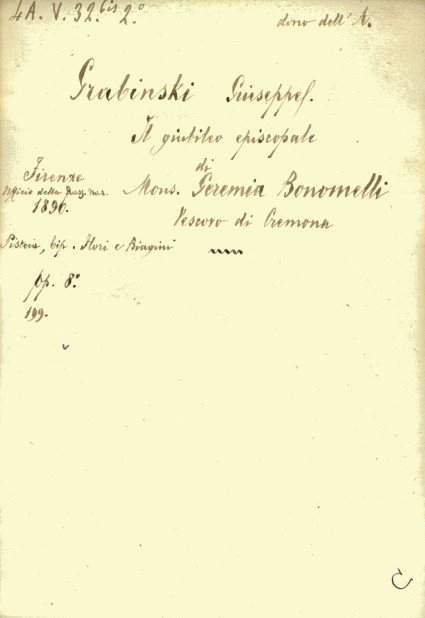 4A. V. 32.bis 2.o
dono dell' A.
Grabinski Giuseppe.
Il giubileo episcopale
di
Mons. Geremia Bonomelli
Vescovo di Cremona
Firenze
Ufficio della Rass. naz.
1896.
Pistoia, tip. Flori e Biagini
op. 8.o
199.